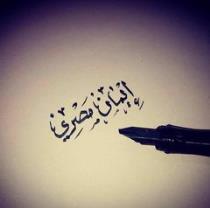 إيمان مصري